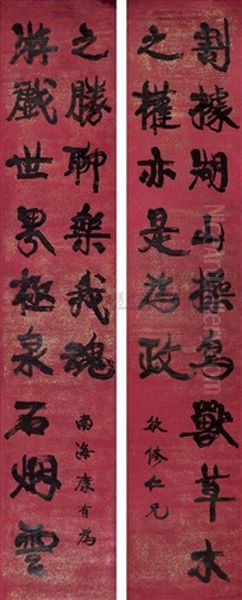 割據湖山操鳥獸草木
之權亦是為政
欲修仁兄
游戲世界極泉石烟雲
之勝聊樂我魂
南海康有為